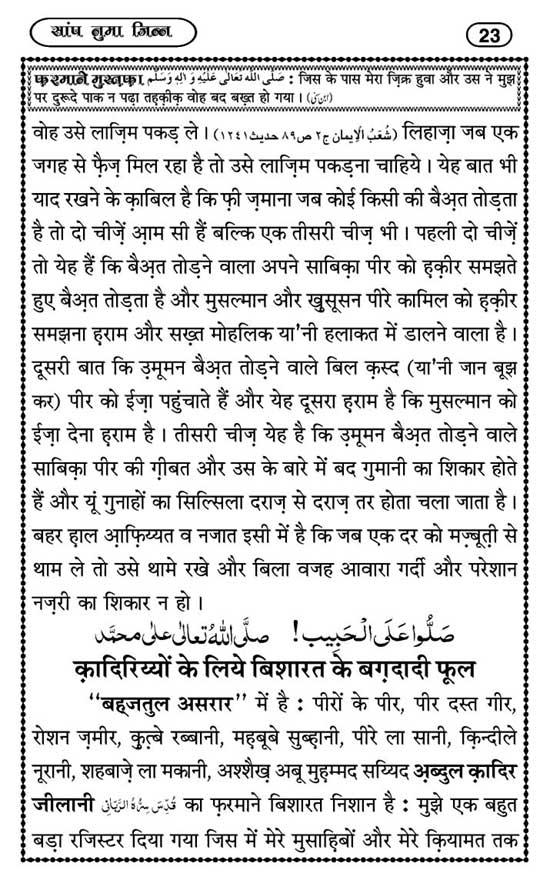 सांप नुमा जिन्न
23
फ़रमाने मुस्तफ़ा صَلَّى اللهُ تَعَالٰى عَلَيْهِ وَاٰلِهٖ وَسَلَّم : जिस के पास मेरा ज़िक्र हुवा और उस ने मुझ
पर दुरूदे पाक न पढ़ा तह़क़ीक़ वोह बद बख़्त हो गया । (ابن سنی)
वोह उसे लाज़िम पकड़ ले । (شُعَبُ الْاِیمان ج۲ ص۸۹ حدیث۱۲۴۱) लिहाज़ा जब एक
जगह से फ़ैज़ मिल रहा है तो उसे लाज़िम पकड़ना चाहिये । येह बात भी
याद रखने के क़ाबिल है कि फ़ी ज़माना जब कोई किसी की बैअ़त तोड़ता
है तो दो चीज़ें आ़म सी हैं बल्कि एक तीसरी चीज़ भी । पहली दो चीज़ें
तो येह हैं कि बैअ़त तोड़ने वाला अपने साबिक़ा पीर को ह़क़ीर समझते
हुए बैअ़त तोड़ता है और मुसल्मान और ख़ुसूसन पीरे कामिल को ह़क़ीर
समझना ह़राम और सख़्त मोहलिक या'नी हलाकत में डालने वाला है ।
दूसरी बात कि उ़मूमन बैअ़त तोड़ने वाले बिल क़स्द (या'नी जान बूझ
कर) पीर को ईज़ा पहुंचाते हैं और येह दूसरा ह़राम है कि मुसल्मान को
ईज़ा देना ह़राम है । तीसरी चीज़ येह है कि उ़मूमन बैअ़त तोड़ने वाले
साबिक़ा पीर की ग़ीबत और उस के बारे में बद गुमानी का शिकार होते
हैं और यूं गुनाहों का सिल्सिला दराज़ से दराज़ तर होता चला जाता है ।
बहर ह़ाल आ़फ़िय्यत व नजात इसी में है कि जब एक दर को मज़्बूती से
थाम ले तो उसे थामे रखे और बिला वजह आवारा गर्दी और परेशान
नज़री का शिकार न हो ।
صَلُّوْا عَلَى الْحَبِيْب! صلَّى اللهُ تعالٰى علٰى محمَّد
क़ादिरिय्यों के लिये बिशारत के बग़दादी फूल
‘‘बह्जतुल असरार’’ में है : पीरों के पीर, पीर दस्त गीर,
रोशन ज़मीर, क़ुत़्बे रब्बानी, मह़बूबे सुब्ह़ानी, पीरे ला सानी, क़िन्दीले
नूरानी, शहबाज़े ला मकानी, अश्शैख़ अबू मुह़म्मद सय्यिद अ़ब्दुल क़ादिर
जीलानी قُدِّسَ سِرُّهُ الرَّبَّانِي का फ़रमाने बिशारत निशान है : मुझे एक बहुत
बड़ा रजिस्टर दिया गया जिस में मेरे मुसाहिबों और मेरे क़ियामत तक